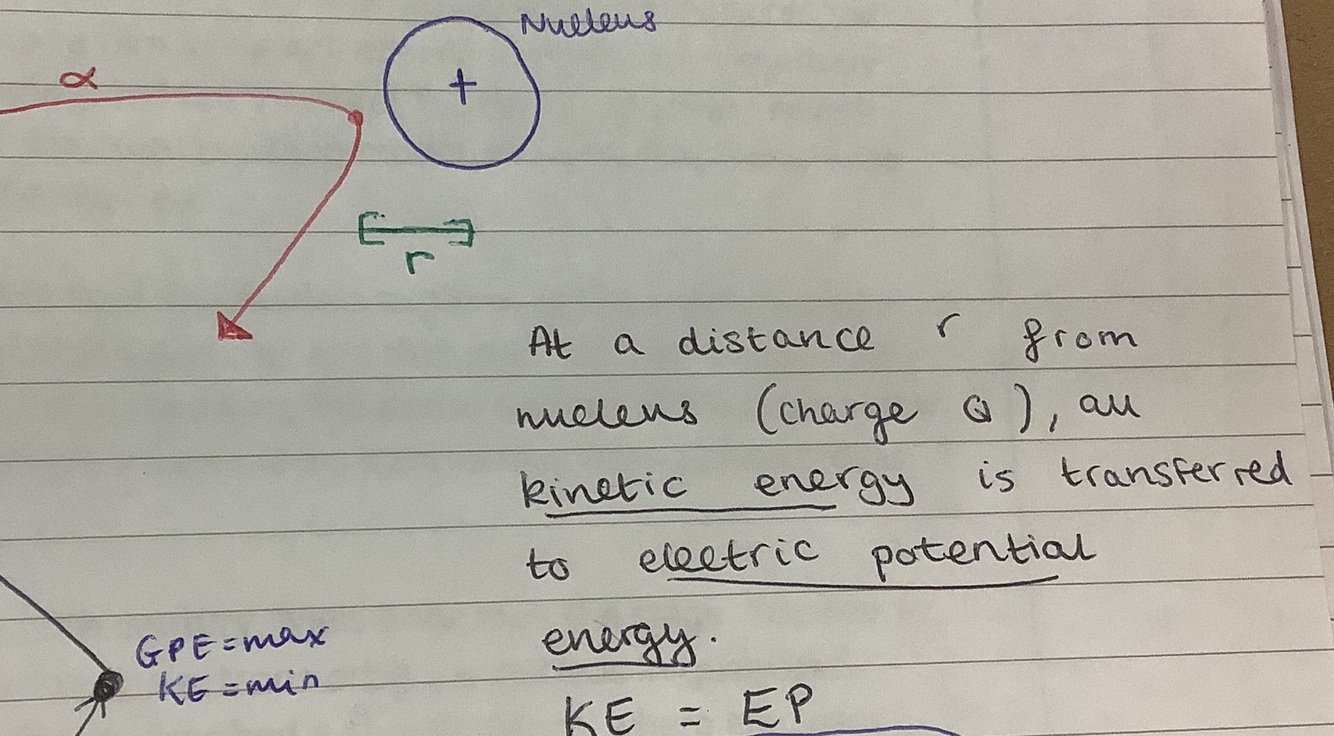 Nucleus
α
+
r
At a distance r from
nucleus (charge Q), all
kinetic energy is transferred
to electric potential
energy.
GPE=max
KE=min
KE = EP